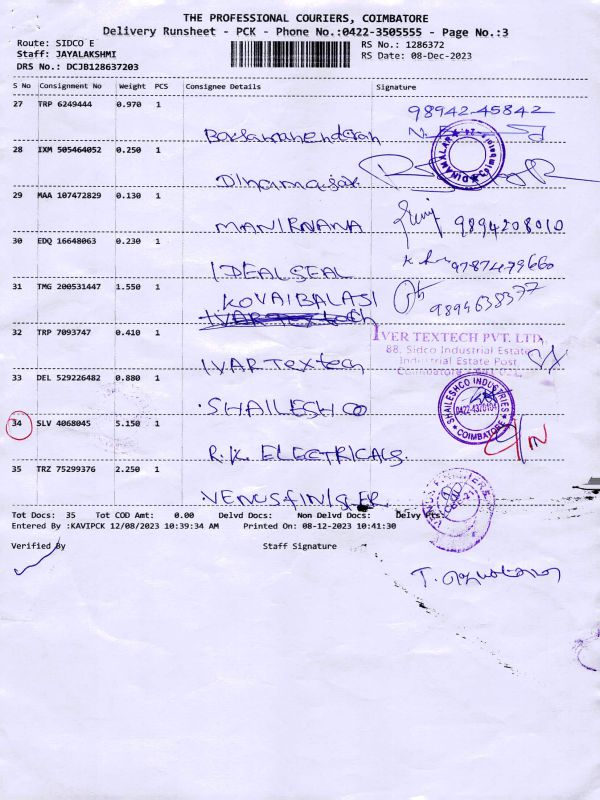 THE PROFESSIONAL COURIERS, COIMBATORE
Delivery Runsheet - PCK - Phone No.:0422-3505555 - Page No.:3
Route: SIDCO E
RS No.: 1286372
Staff: JAYALAKSHMI
RS Date: 08-Dec-2023
DRS No.: DCJB128637203
S No Consignment No Weight PCS Consignee Details Signature
27 TRP 6249444 0.970 1
98942-45842
28 IXM 505464052 0.250 1
DINAMALAR
29 MAA 107472829 0.130 1
MANIRNANA 9894208010
30 EDQ 16648063 0.230 1
IDEAL SEAL 9787479660
31 TMG 200531447 1.550 1
KOVAIBALASI 9894638377
32 TRP 7093747 0.410 1
IVER TEXTECH PVT. LTD.
88, Sidco Industrial Estate
Industrial Estate Post
Coimbatore
IVAR Textech
33 DEL 529226482 0.880 1
SHAILESHCO INDUSTRIES
0422-4370104
COIMBATORE
SHAILESH CO
34 SLV 4068045 5.150 1
R.K. ELECTRICALS.
35 TRZ 75299376 2.250 1
Tot Docs: 35 Tot COD Amt: 0.00 Delvd Docs: Non Delvd Docs: Delvy Pts:
Entered By :KAVIPCK 12/08/2023 10:39:34 AM Printed On: 08-12-2023 10:41:30
Verified By Staff Signature